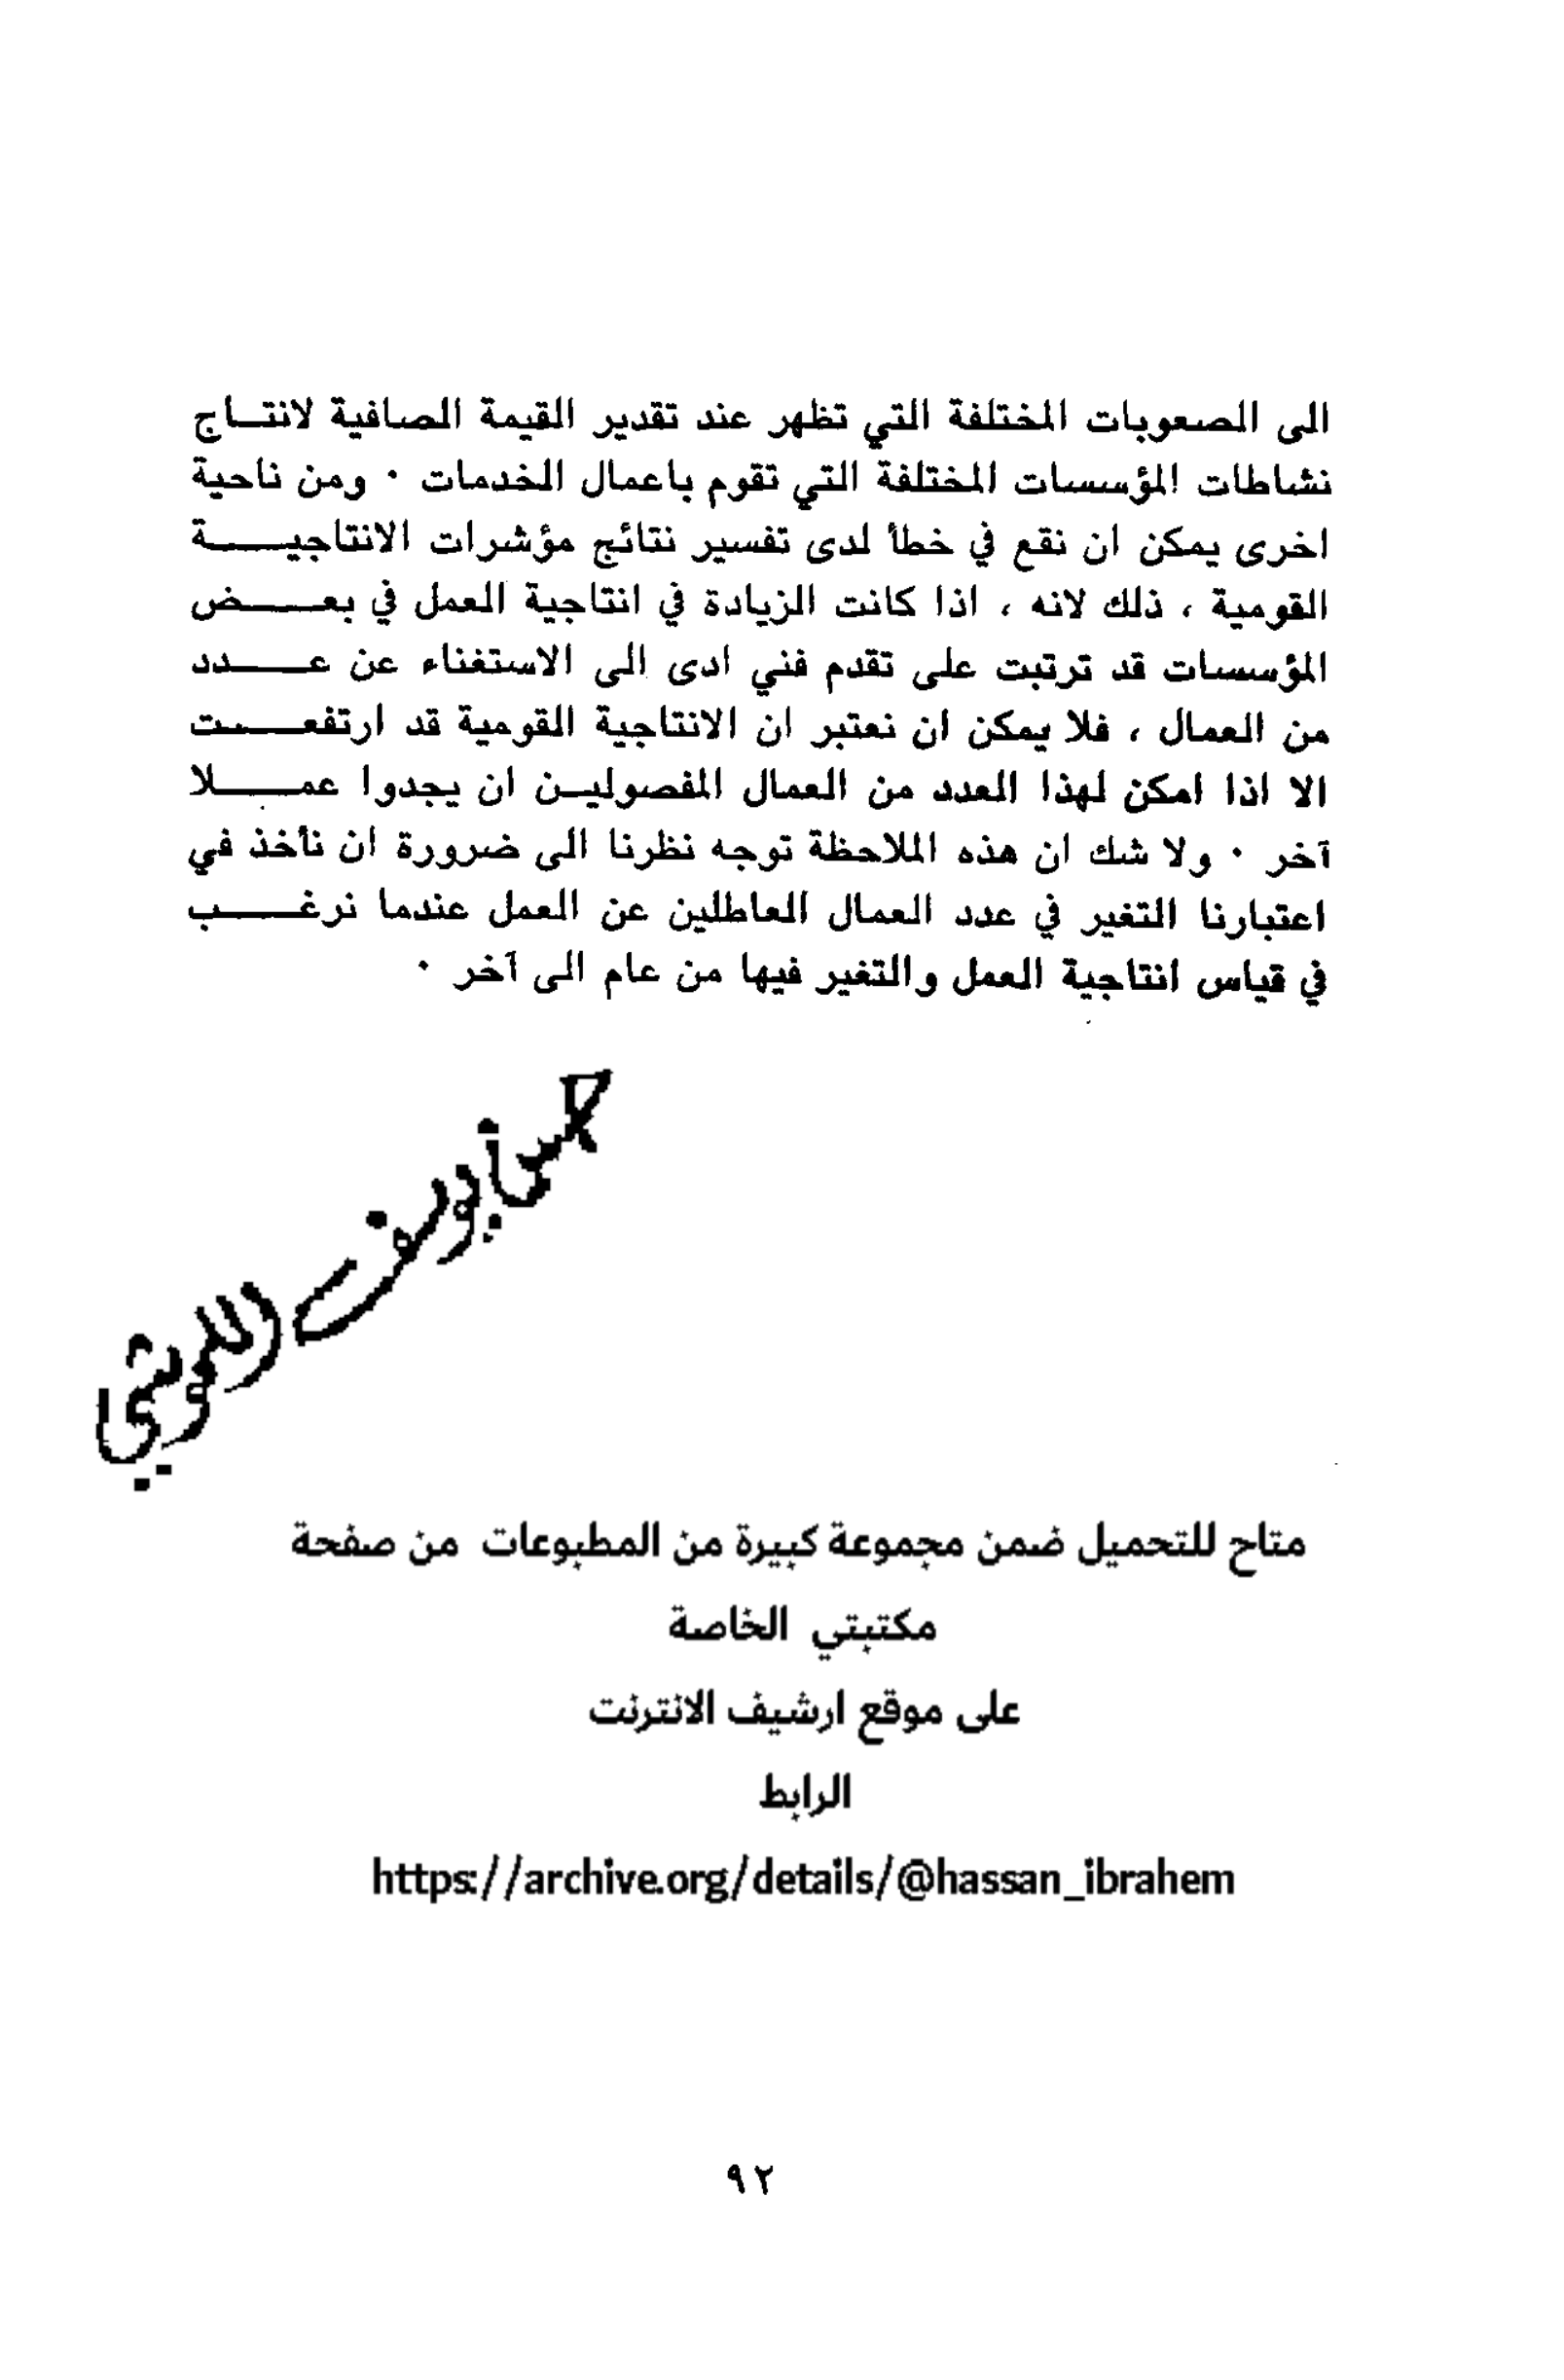 الى الصعوبات المختلفة التي تظهر عند تقدير القيمة الصافية لانتـاج
نشاطات المؤسسات المختلفة التي تقوم باعمال الخدمات ٠ ومن ناحية
اخرى يمكن ان نقع في خطأ لدى تفسير نتائج مؤشرات الانتاجيـــــة
القومية ، ذلك لانه ، اذا كانت الزيادة في انتاجية العمل في بعــــض
المؤسسات قد ترتبت على تقدم فني ادى الى الاستغناء عن عــــدد
من العمال ، فلا يمكن ان نعتبر ان الانتاجية القومية قد ارتفعــــت
الا اذا امكن لهذا العدد من العمال المفصوليـن ان يجدوا عمــــلا
آخر ٠ ولا شك ان هذه الملاحظة توجه نظرنا الى ضرورة ان نأخذ في
اعتبارنا التغير في عدد العمال العاطلين عن العمل عندما نرغــــب
في قياس انتاجية العمل والتغير فيها من عام الى آخر ٠
متاح للتحميل ضمن مجموعة كبيرة من المطبوعات من صفحة
مكتبتي الخاصة
على موقع ارشيف الانترنت
الرابط
https://archive.org/details/@hassan_ibrahem
٩٢